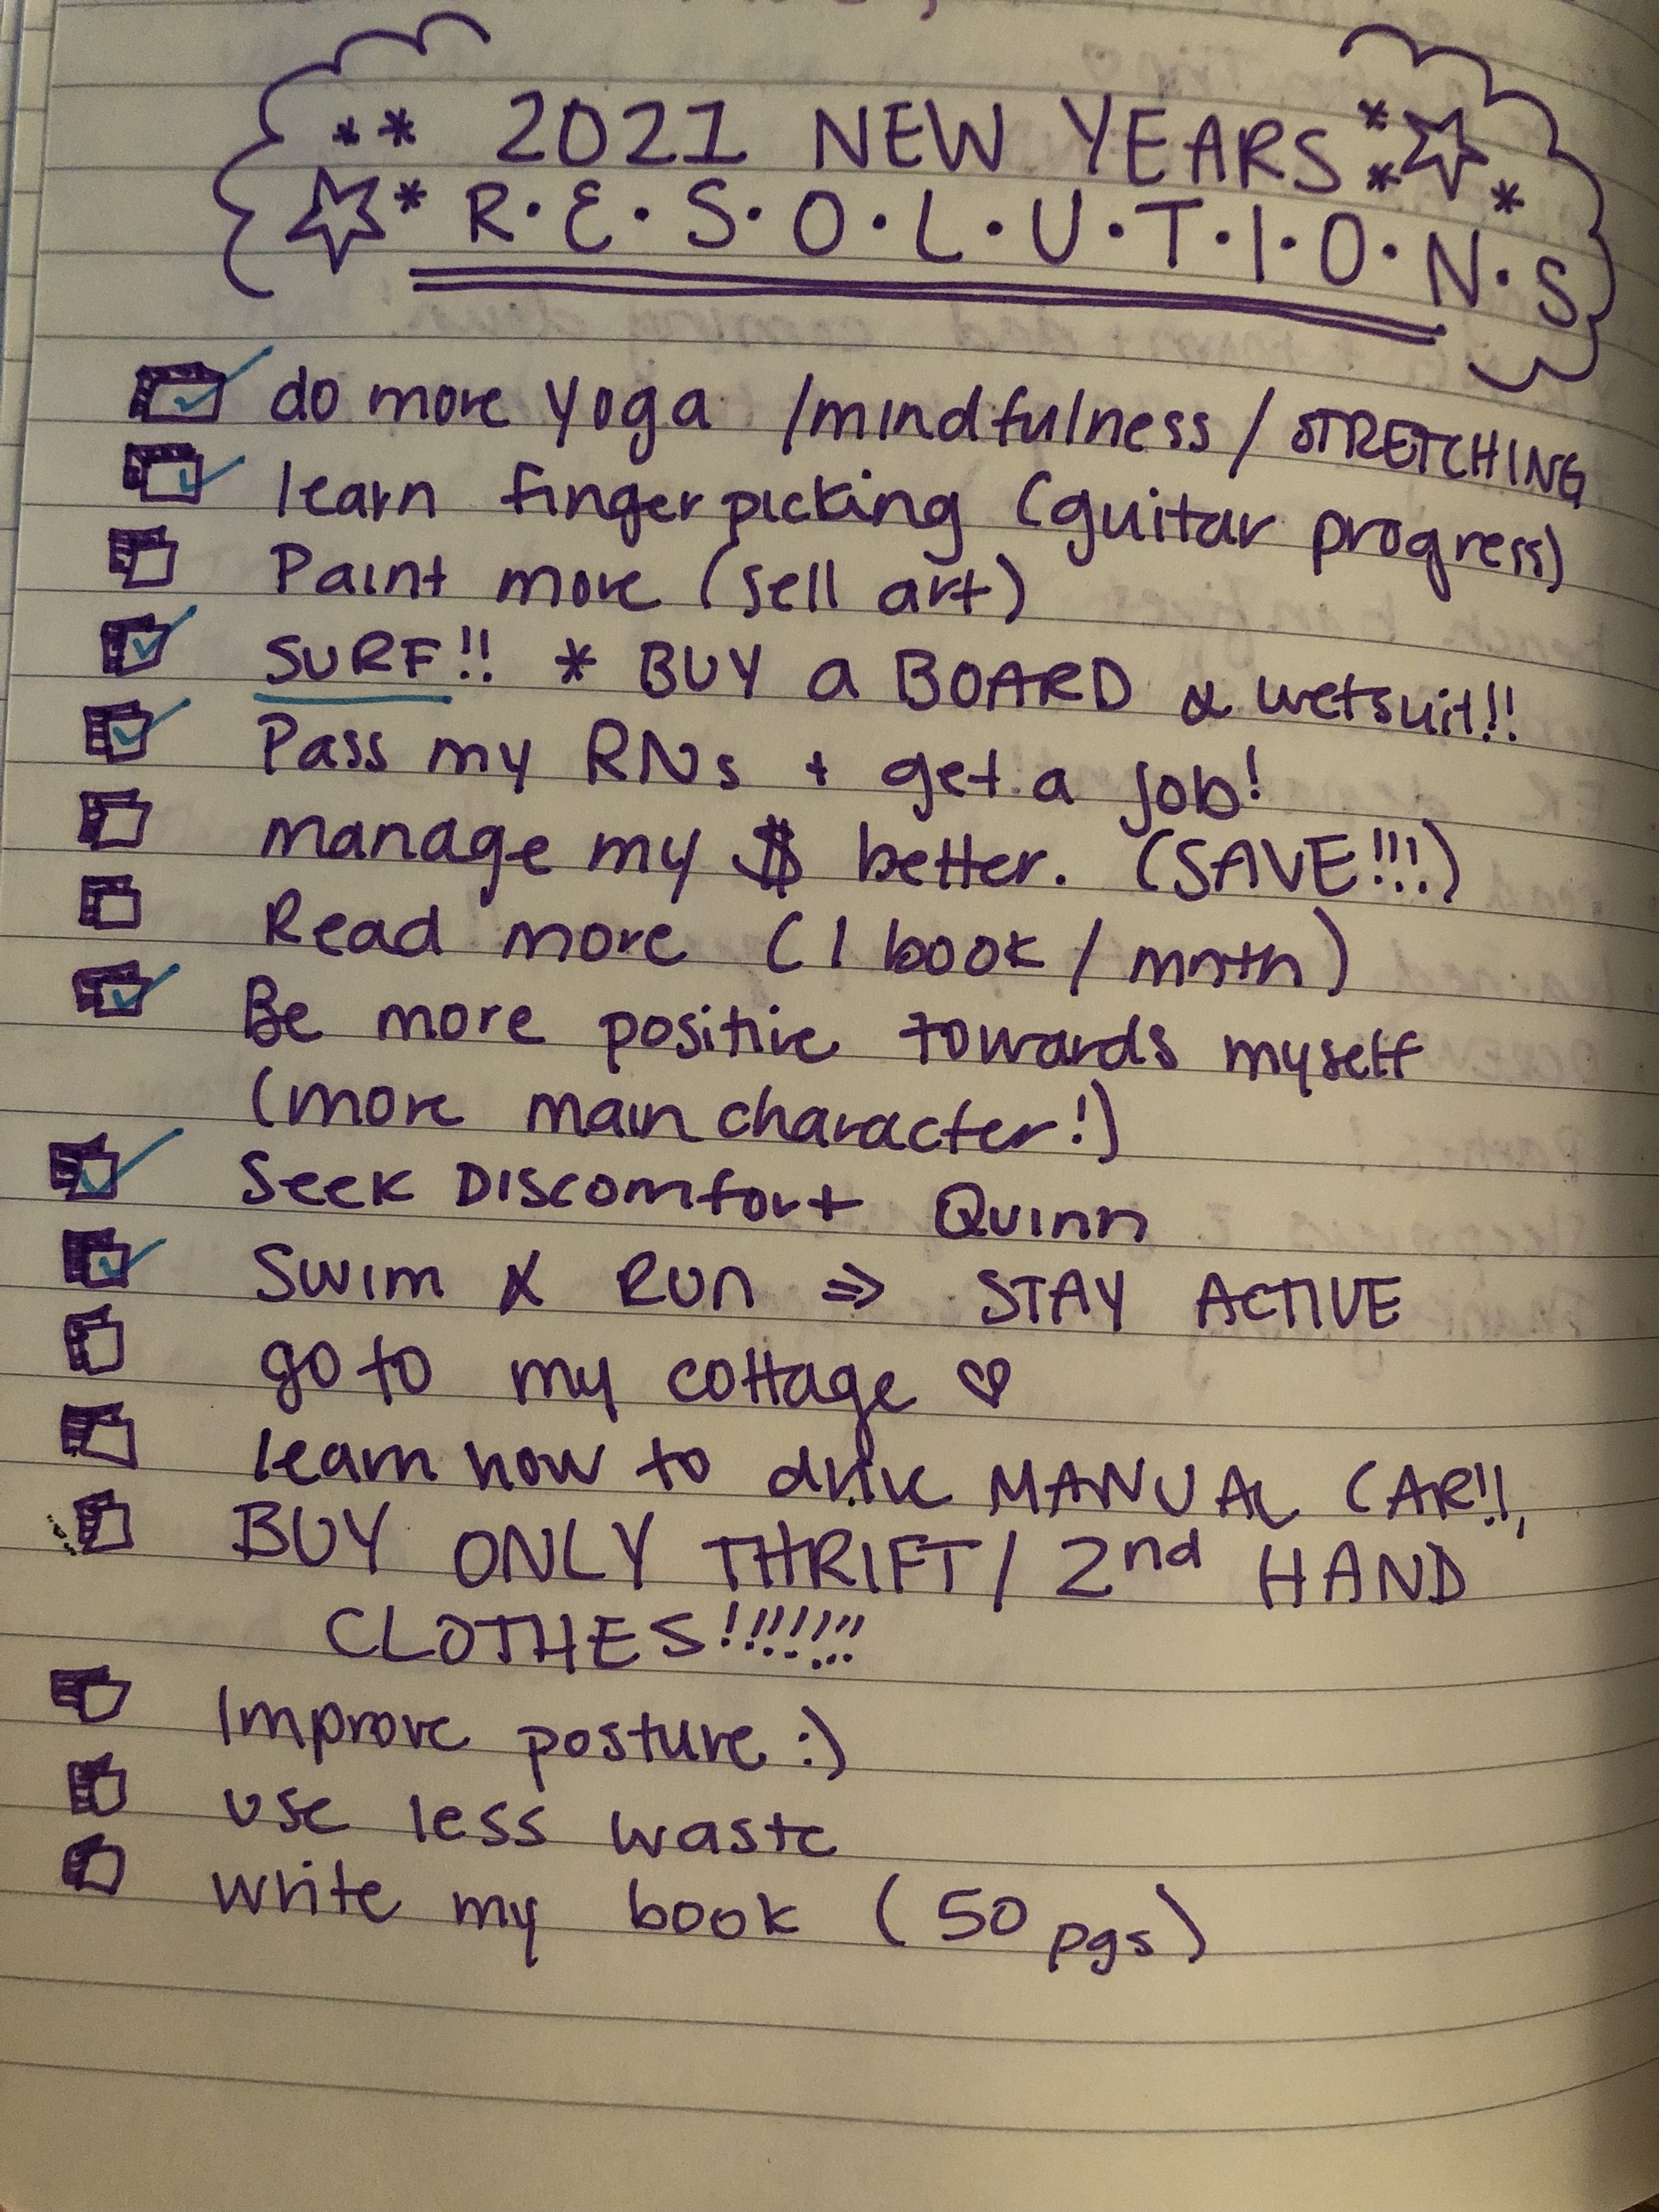 2021 NEW YEARS
R.E.S.O.L.U.T.I.O.N.S
do more yoga /mindfulness / STRETCHING
learn finger picking (guitar progress)
Paint more (sell art)
SURF!! * BUY a BOARD & wetsuit!!
Pass my RNs + get a job!
manage my $ better. (SAVE!!!)
Read more (1 book / mnth)
Be more positive towards myself
(more main character!)
Seek DIscomfort Quinn
Swim & Run ⇒ STAY ACTIVE
go to my cottage ♡
learn how to drive MANUAL CAR!!
BUY ONLY THRIFT / 2nd HAND
CLOTHES!!!!!!!
Improve posture :)
use less waste
write my book (50 pgs)